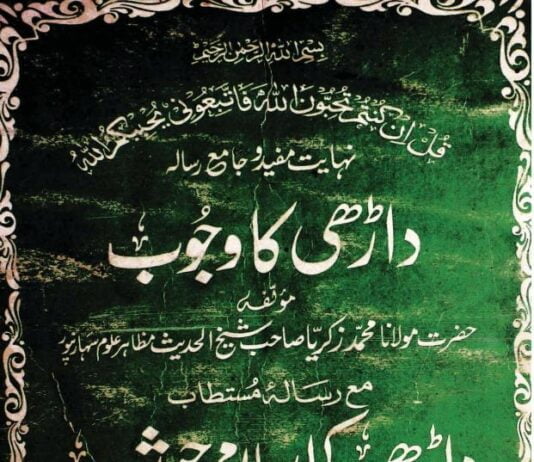 بسم اللہ الرحمن الرحیم
قُل اِن كُنتُم تُحِبُّونَ اللّٰہَ فَاتَّبِعُونِی یُحبِبکُمُ اللّٰہُ
نہایت مفید و جامع رسالہ
داڑھی کا وجُوب
مؤلّفہ
حضرت مولانا محمّد زکریّا صاحب شیخ الحدیث مظاہر علوم سہارنپور
مع رسالۂ مُستطاب
داڑھی کی اسلامی حیثیت